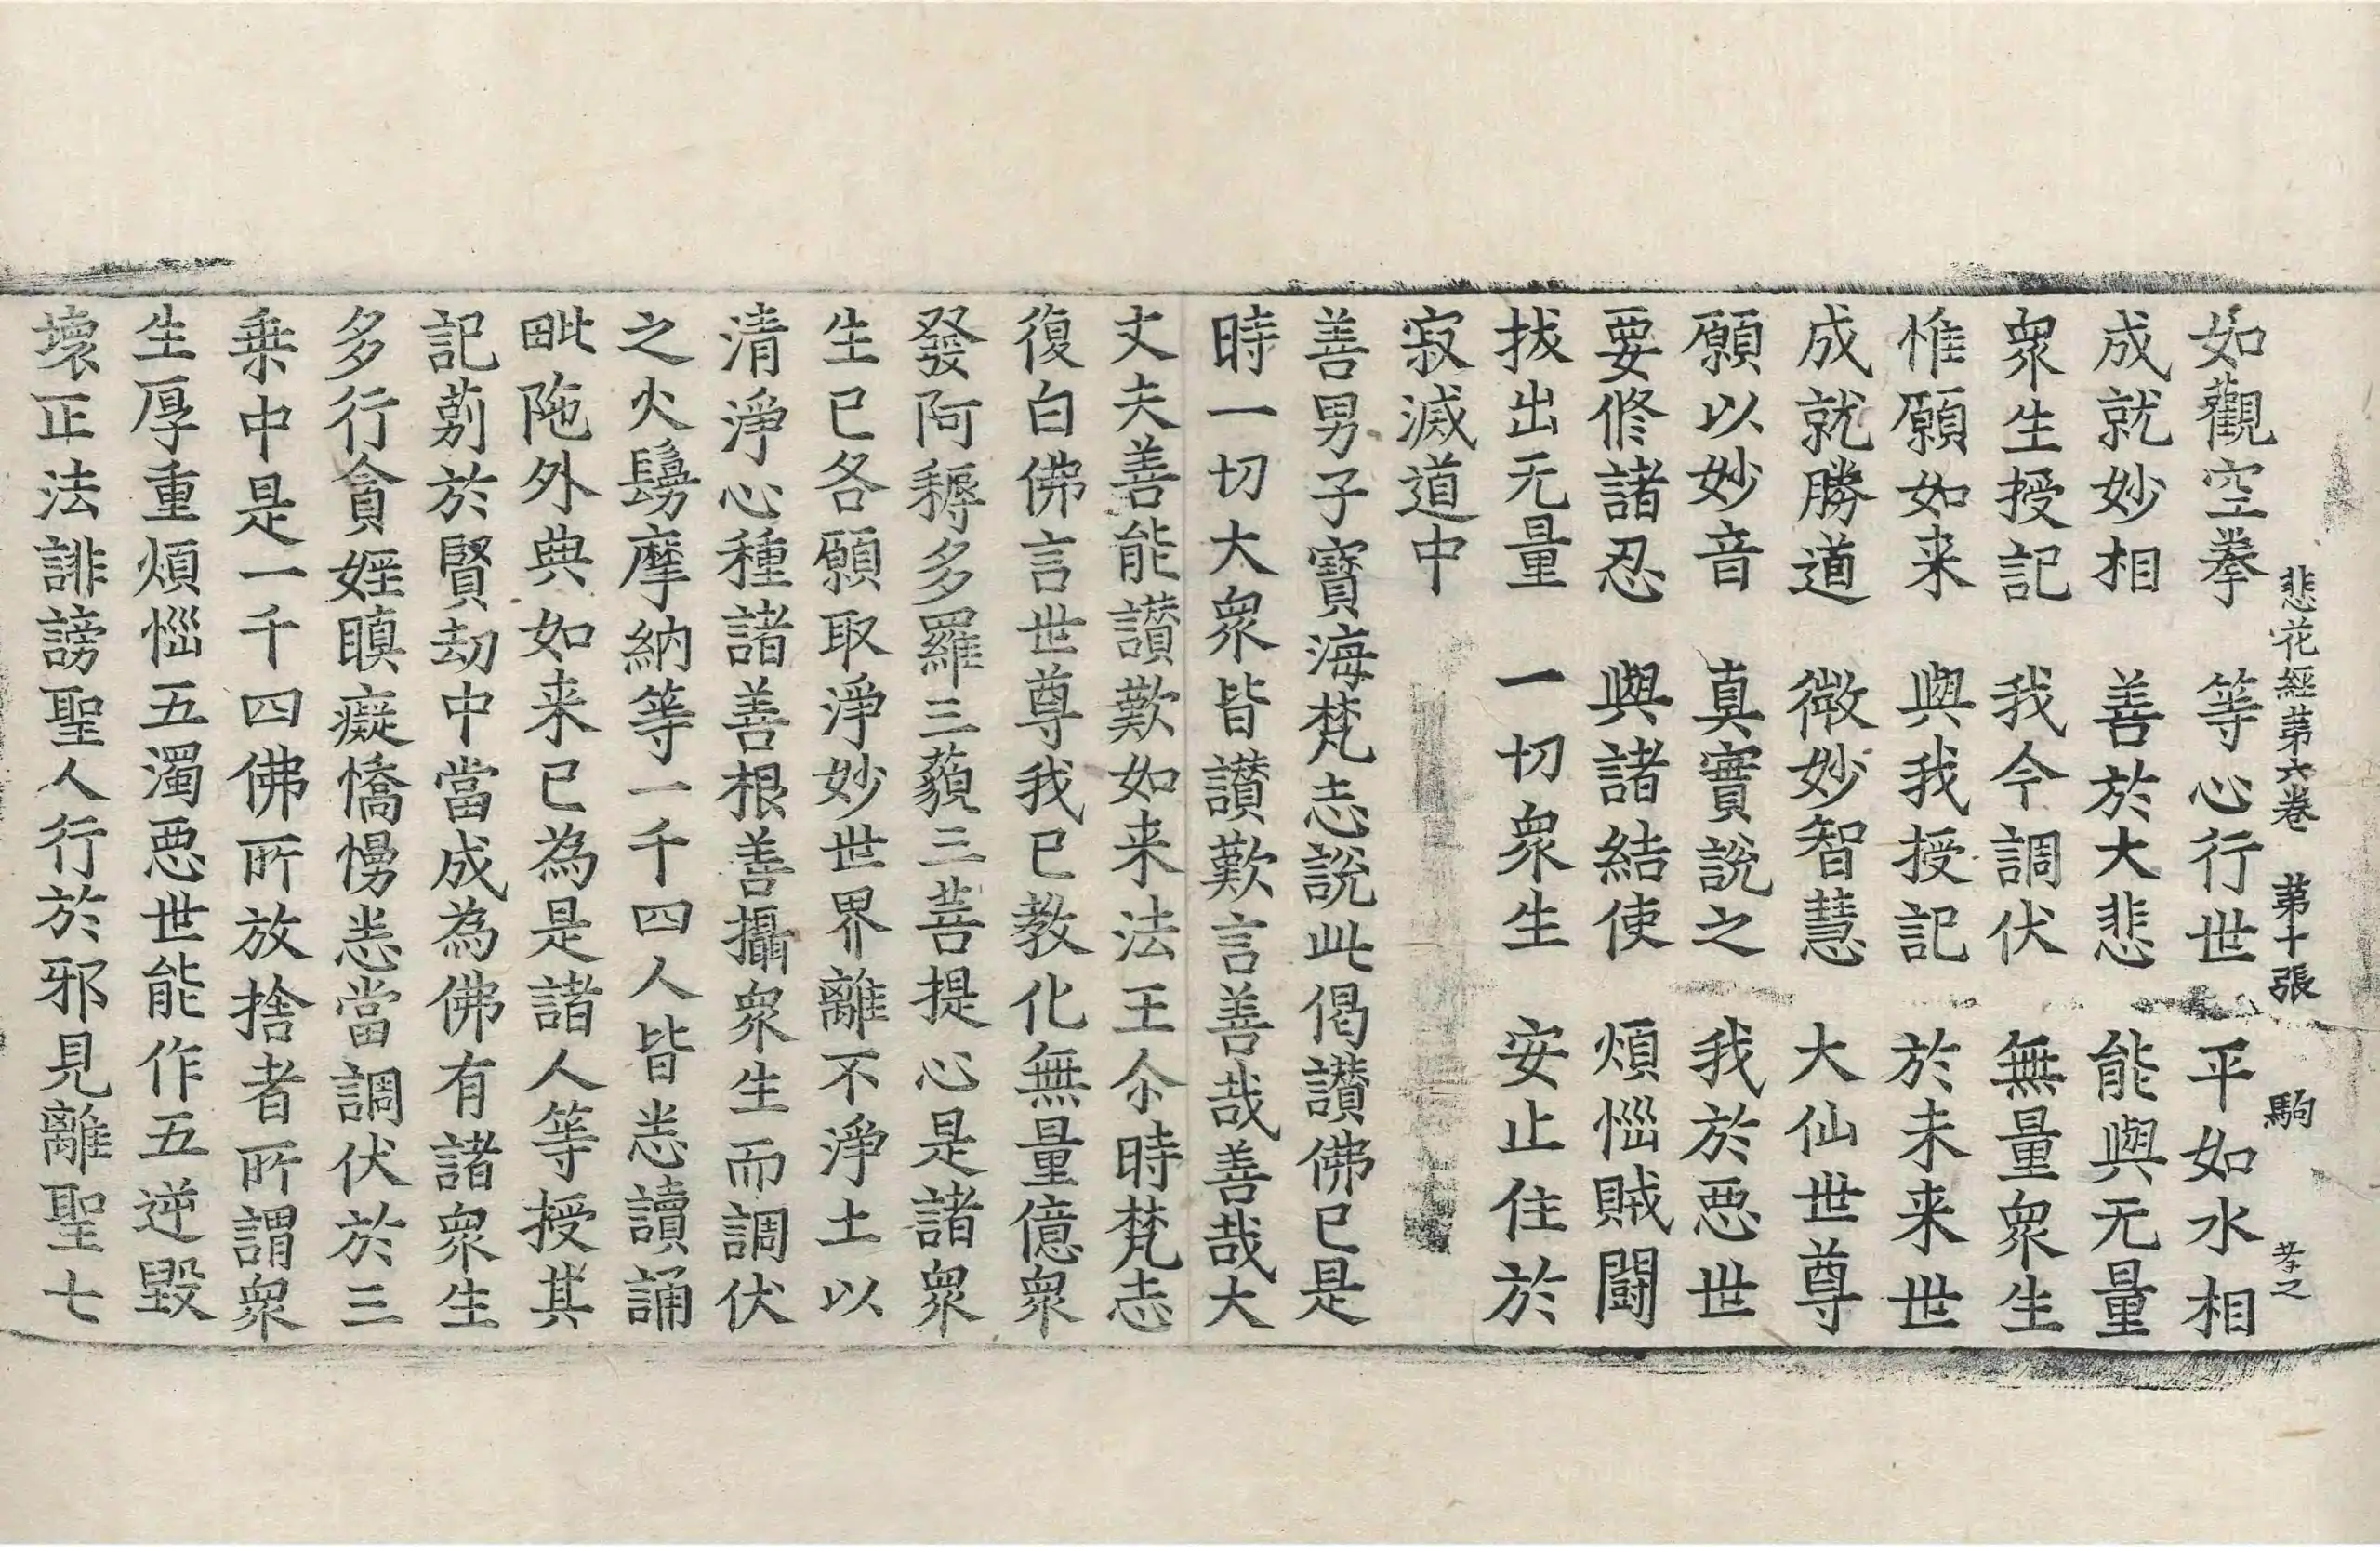 悲花經第六卷 第十張 駒 孝之
如觀空拳 等心行世 平如水相
成就妙相 善於大悲 能與无量
衆生授記 我今調伏 無量衆生
惟願如来 與我授記 於未来世
成就勝道 微妙智慧 大仙世尊
願以妙音 真實說之 我於惡世
要修諸忍 與諸結使 煩惱賊闘
拔出无量 一切衆生 安止住於
寂滅道中
善男子寶海梵志說此偈讃佛已是
時一切大衆皆讃歎言善哉善哉大
丈夫善能讃歎如来法王尒時梵志
復白佛言世尊我已教化無量億衆
發阿耨多羅三藐三菩提心是諸衆
生已各願取淨妙世界離不淨土以
清淨心種諸善根善攝衆生而調伏
之火鬘摩納等一千四人皆悉讀誦
毗陁外典如来已為是諸人等授其
記莂於賢劫中當成為佛有諸衆生
多行貪婬瞋癡憍慢悉當調伏於三
乗中是一千四佛所放捨者所謂衆
生厚重煩惱五濁惡世能作五逆毀
壞正法誹謗聖人行於邪見離聖七